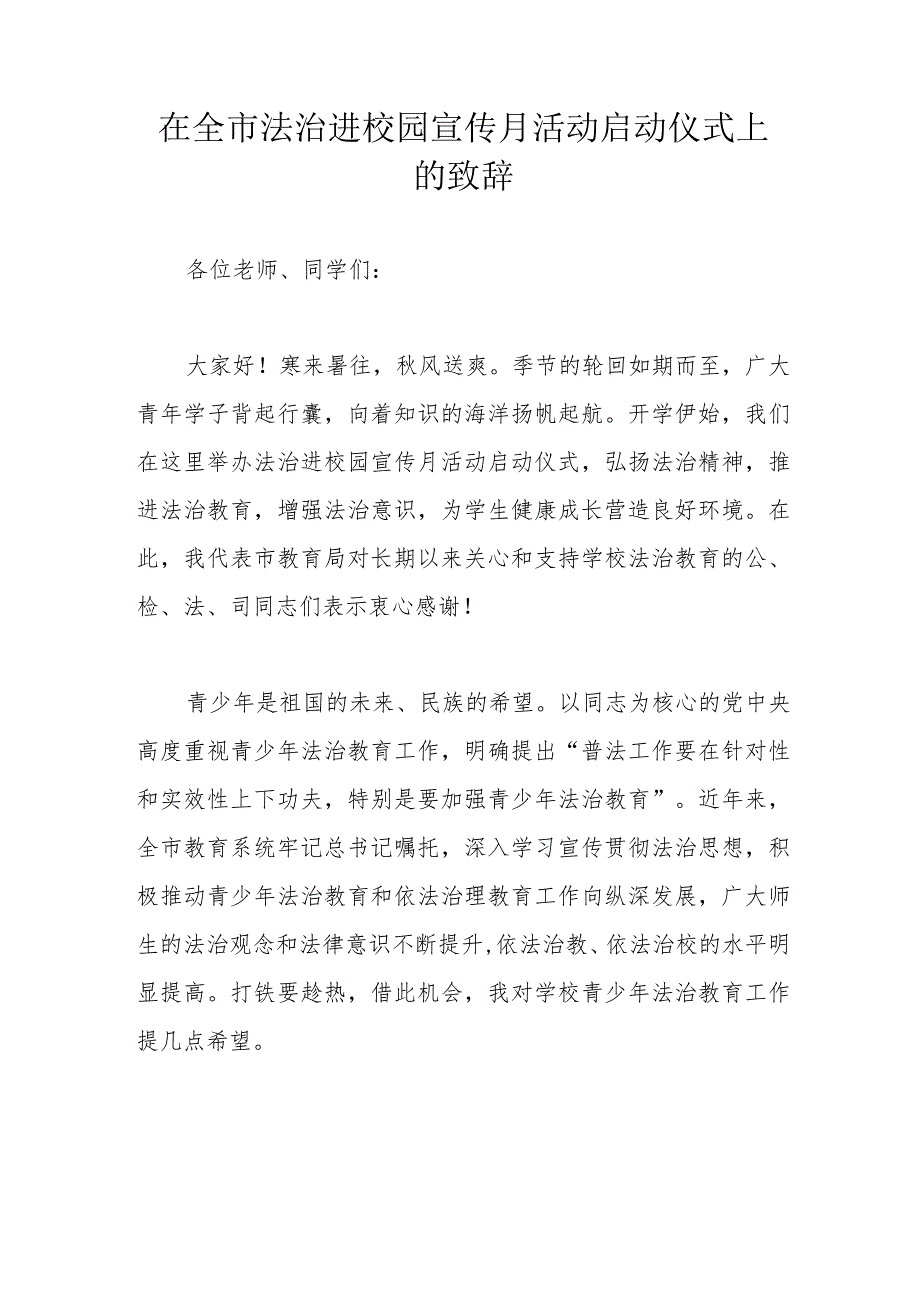 在全市法治进校园宣传月活动启动仪式上
的致辞
各位老师、同学们：
大家好！寒来暑往，秋风送爽。季节的轮回如期而至，广大
青年学子背起行囊，向着知识的海洋扬帆起航。开学伊始，我们
在这里举办法治进校园宣传月活动启动仪式，弘扬法治精神，推
进法治教育，增强法治意识，为学生健康成长营造良好环境。在
此，我代表市教育局对长期以来关心和支持学校法治教育的公、
检、法、司同志们表示衷心感谢！
青少年是祖国的未来、民族的希望。以同志为核心的党中央
高度重视青少年法治教育工作，明确提出“普法工作要在针对性
和实效性上下功夫，特别是要加强青少年法治教育”。近年来，
全市教育系统牢记总书记嘱托，深入学习宣传贯彻法治思想，积
极推动青少年法治教育和依法治理教育工作向纵深发展，广大师
生的法治观念和法律意识不断提升,依法治教、依法治校的水平明
显提高。打铁要趁热，借此机会，我对学校青少年法治教育工作
提几点希望。